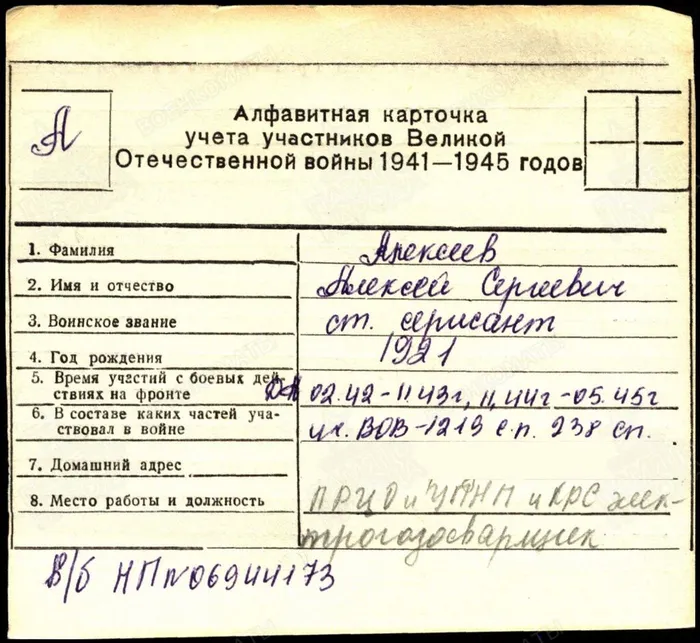 А
Алфавитная карточка
учета участников Великой
Отечественной войны 1941—1945 годов
1. Фамилия Алексеев
2. Имя и отчество Алексей Сергеевич
3. Воинское звание ст. сержант
4. Год рождения 1921
5. Время участий с боевых дей-
ствиях на фронте 02.42-11.43г, 11.44г-05.45г
6. В составе каких частей уча-
ствовал в войне уч. ВОВ-1213 с.п. 238 сп.
7. Домашний адрес
8. Место работы и должность ПРЦО и УПНП и КРС элек-
трогазосварщик
В/б НП №06944173